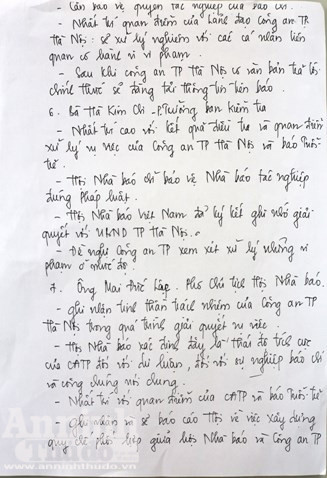 - Cần bảo vệ quyền tác nghiệp của báo chí.
- Nhất trí quan điểm của lãnh đạo Công an TP
Hà Nội: sẽ xử lý nghiêm với các cá nhân liên
quan có hành vi vi phạm.
- Sau khi Công an TP Hà Nội có văn bản trả lời
chính thức sẽ đăng tải thông tin trên báo.
6. Bà Hà Kim Chi - P.Trưởng ban kiểm tra
- Nhất trí cao với kết quả điều tra và quan điểm
xử lý vụ việc của Công an TP Hà Nội và báo Tuổi
trẻ.
- Hội Nhà báo chỉ bảo vệ Nhà báo tác nghiệp
đúng pháp luật.
- Hội Nhà báo Việt Nam đã ký kết ghi nhớ giải
quyết với UBND TP Hà Nội.
- Đề nghị Công an TP xem xét xử lý những vi
phạm ở mức độ.
7. Ông Mai Đức Lộc. Phó Chủ tịch Hội Nhà báo.
- ghi nhận tinh thần trách nhiệm của Công an TP
Hà Nội trong quá trình giải quyết vụ việc.
- Hội Nhà báo xác định đây là thái độ tích cực
của CATP đối với dư luận, đối với sự nghiệp báo chí
và công chúng nói chung.
- Nhất trí với quan điểm của CATP và báo Tuổi trẻ
- Ghi nhận và sẽ báo cáo Hội về việc xây dựng
quy chế phối hợp giữa Hội Nhà báo và Công an TP
An ninh
Thủ đô
www.anninhthudo.vn